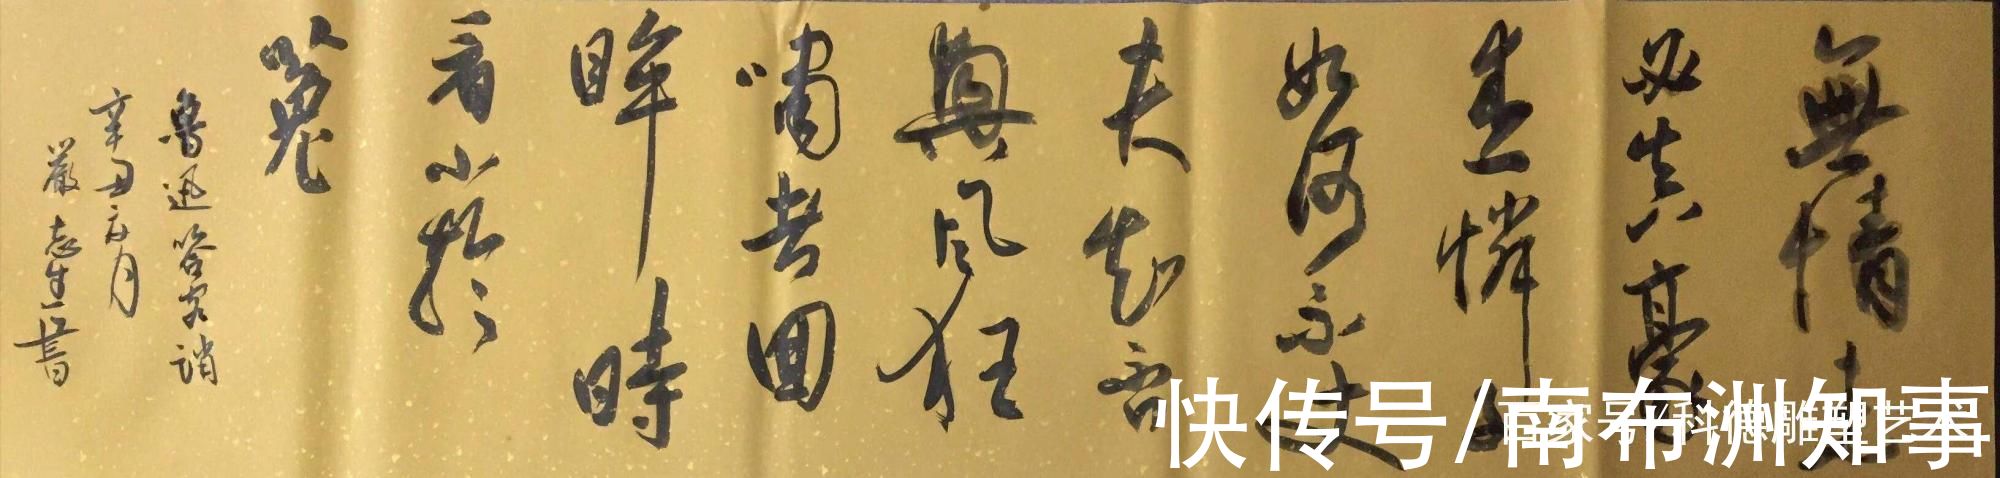 無情未
必真豪
杰憐子
如何不丈
夫知否
興風狂
嘯者回
眸時
看小於
菟
魯迅答客誚
辛丑月
嚴志生書
快传号/南布洲知事
百家号/科德雕塑艺